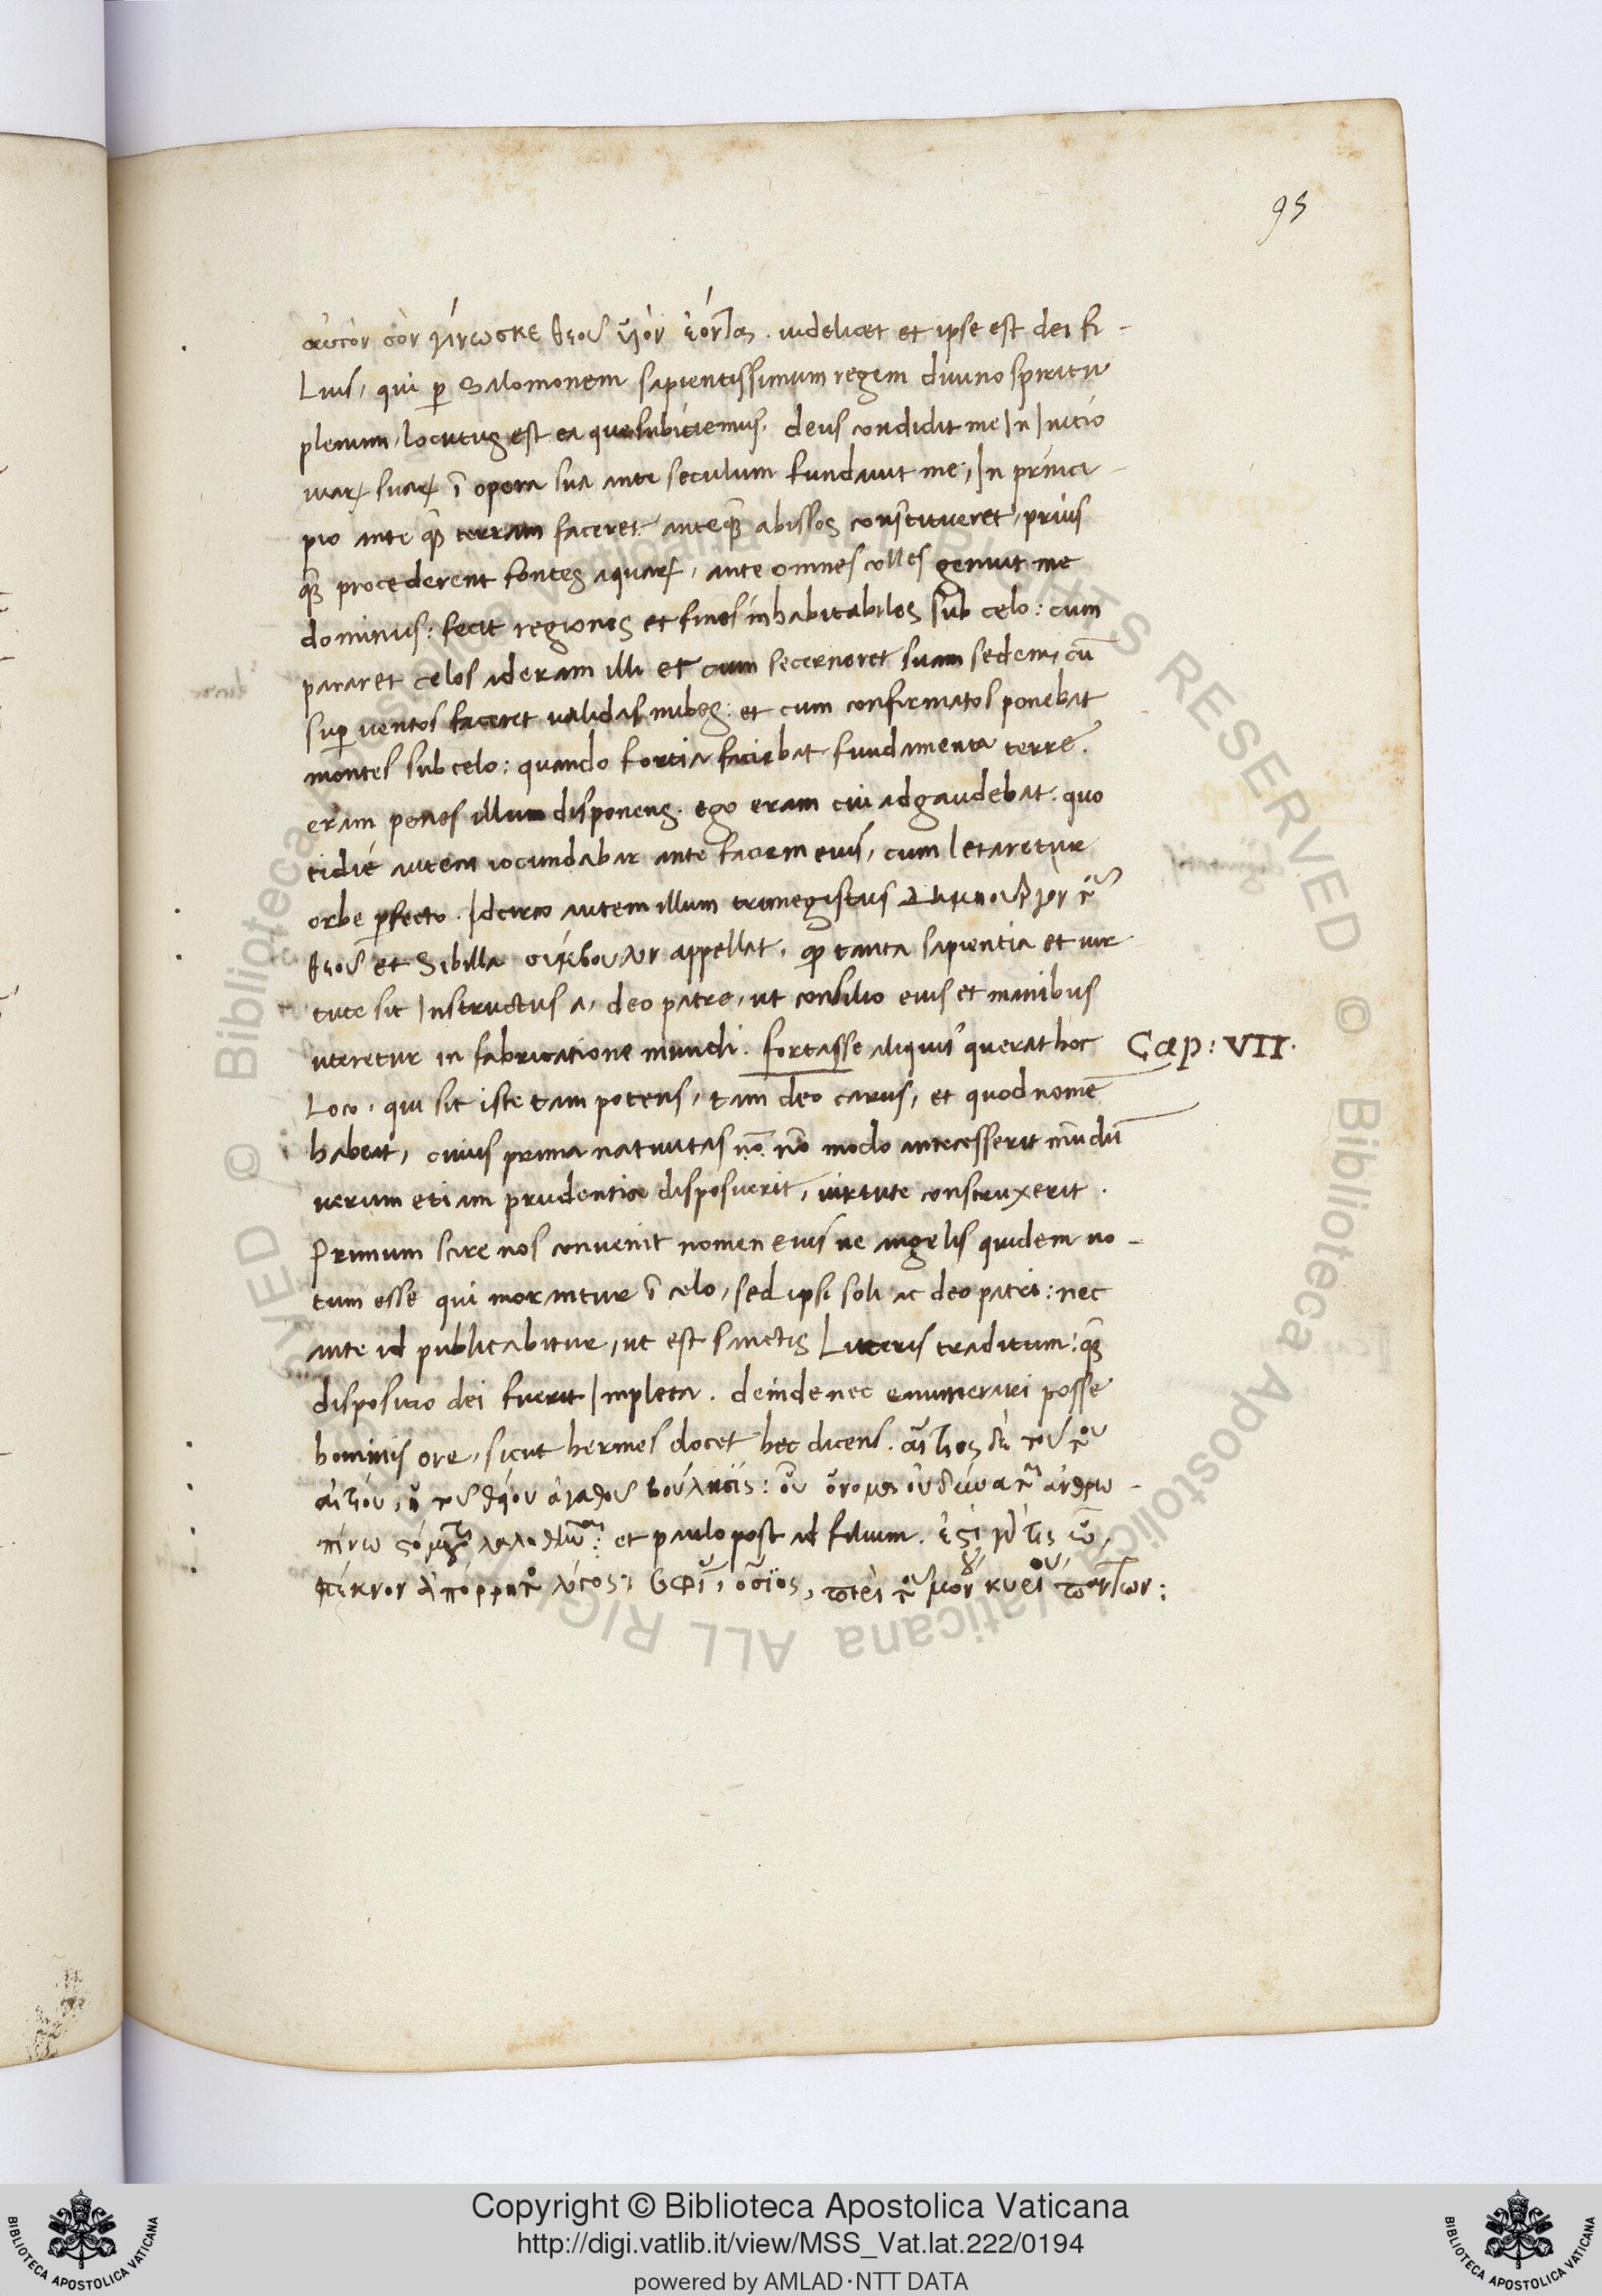 95
αὐτὸν σὸν γίνωσκε θεοῦ υἱὸν ἐόντα. uidelicet et ipse est dei fi-
Lius, qui ꝑ Salomonem sapientissimum regem diuino spiritu
plenum, locutus est ea que subiciemus. deus condidit me In Initio
uiaꝝ suaꝝ ī opera sua ante seculum fundauit me: In princi-
pio ante qꝫ terram faceret anteqꝫ abissos constitueret, prius
qꝫ procederent fontes aquaꝝ, ante omnes colles genuit me
dominus: fecit regiones et fines inhabitabiles sub celo: cum
pararet celos aderam illi et cum secerneret suam sedem, cū
suꝑ uentos faceret ualidas nubes: et cum confirmatos ponebat
montes sub celo: quando fortia faciebat fundamenta terre.
eram penes illum disponens. ego eram cui adgaudebat. quo
tidie autem iocundabar ante faciem eius, cum letaretur
orbe ꝑfecto. Idcirco autem illum trimegistus δημιουργὸν τοῦ
θεοῦ et Sibilla σύμβουλον appellat. ꝙ tanta sapientia et uir
tute sit Instructus a, deo patre, ut consilio eius et manibus
uteretur in fabricatione mundi. fortasse aliquis querat hoc
Cap: VII.
Loco. qui sit iste tam potens, tam deo carus, et quod nomē
habeat, cuius prima natiuitas nō nō modo antecesserit mūdū
uerum etiam prudentia disposuerit, uirtute construxerit.
Primum scire nos conuenit nomen eius ne angelis quidem no-
tum esse qui morantur ī celo, sed ipsi soli ac deo patri: nec
ante id publicabitur, ut est sanctis Litteris traditum: qꝫ
dispositio dei fuerit Impleta. deinde nec enumerari posse
hominis ore, sicut hermes docet hec dicens. αἴτιος δὲ τοῦ τοῦ
αἰτίου, ἡ τοῦ θείου ἀγαθοῦ βούλησις: οὗ ὄνομα οὐ δύναται ἀνθρω-
πίνω στόματι λαληθῆναι: et paulo post ad filium. ἔστι γάρ τις ὦ,
τέκνον ἀπόρρητος λόγος:
Copyright © Biblioteca Apostolica Vaticana
http://digi.vatlib.it/view/MSS_Vat.lat.222/0194
powered by AMLAD·NTT DATA
BIBLIOTECA APOSTOLICA VATICANA
BIBLIOTECA APOSTOLICA VATICANA